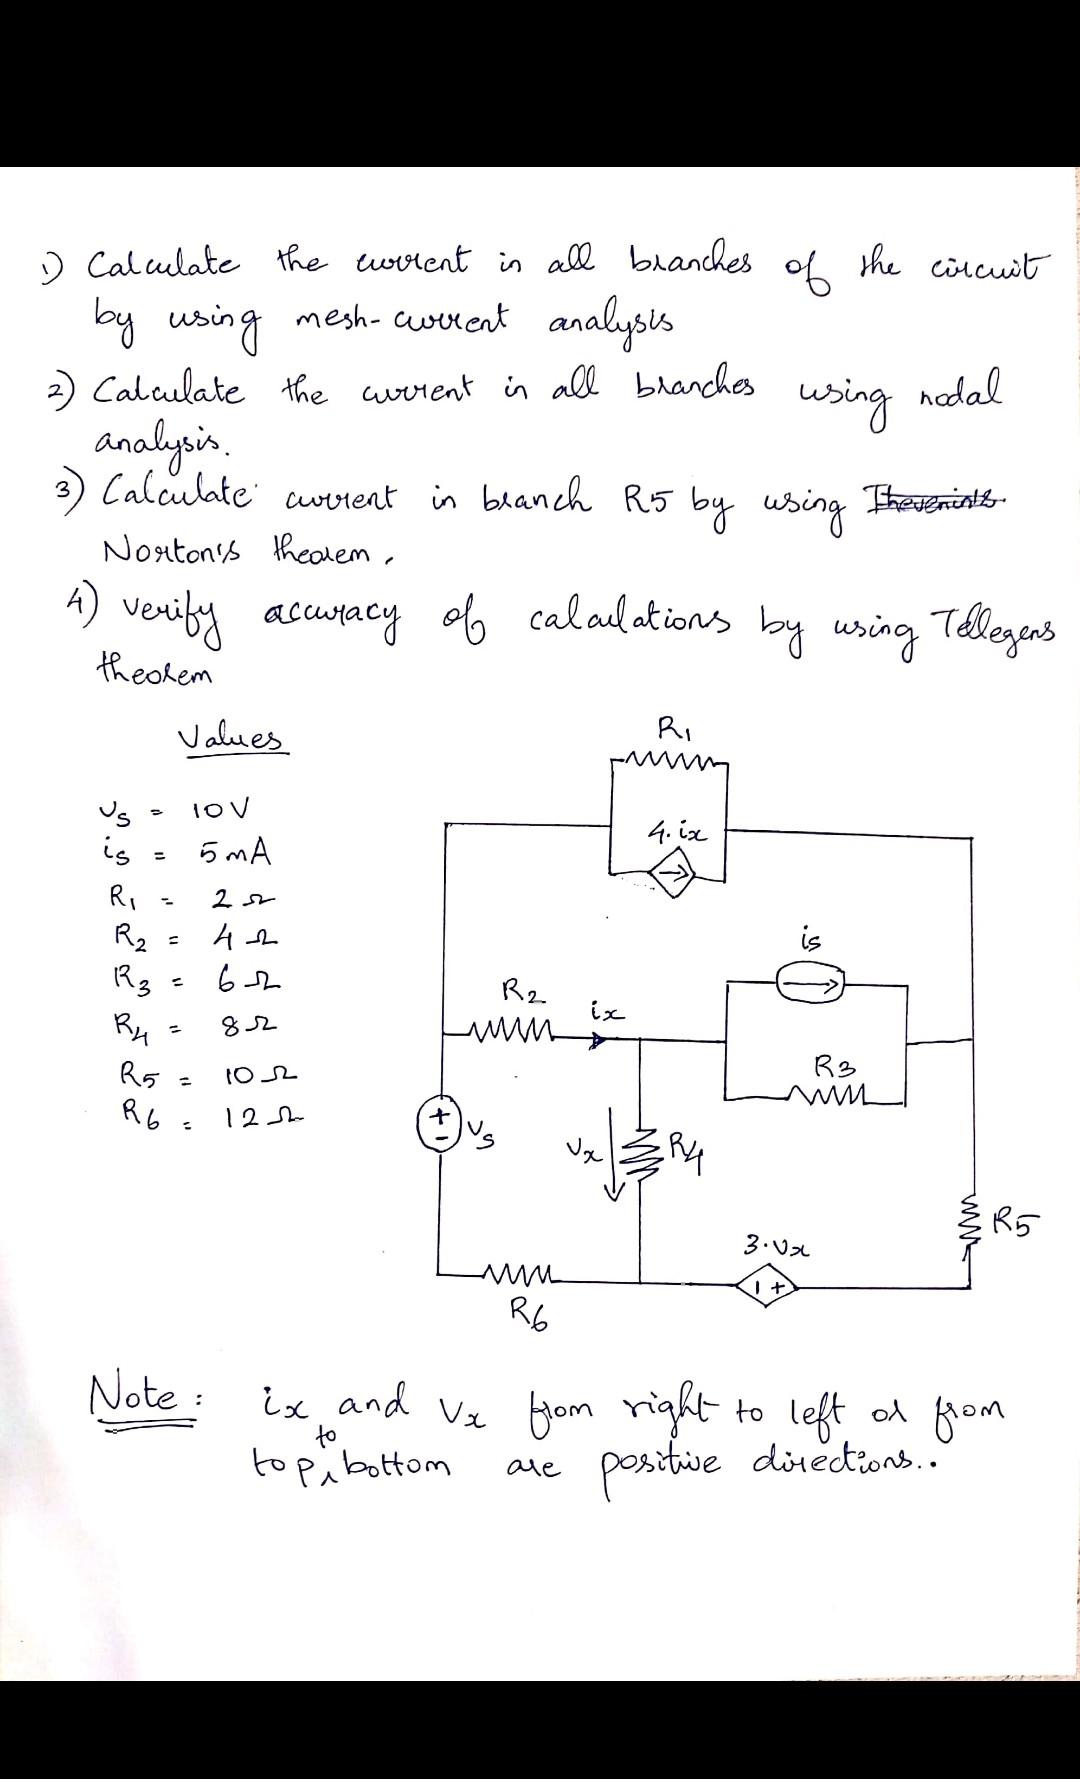 1) Calculate the current in all branches of the circuit
by using mesh-current analysis
2) Calculate the current in all branches using nodal
analysis.
3) Calculate current in branch R5 by using Thevenin's
Norton's theorem.
4) verify accuracy of calculations by using Tellegens
theorem
Values
Vs = 10V
is = 5mA
R1 = 2Ω
R2 = 4Ω
R3 = 6Ω
R4 = 8Ω
R5 = 10Ω
R6 = 12Ω
R1
4.ix
is
R2
ix
R3
+
-
Vs
Vx
R4
R5
3.Vx
- +
R6
Note: ix and Vx from right to left or from
top to bottom are positive directions..